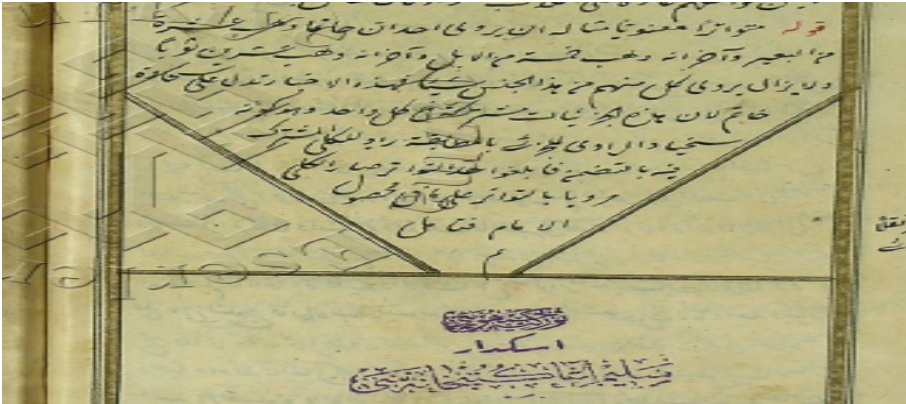 قوله متواترا معنويا مثاله ان يروى احد ان حاتما وهب عشرة
من البعير وآخر انه وهب خمسة من الابل وآخر انه وهب عشرين ثوبا
ولا يزال يروى كل منهم من هذا الجنس شيئا فهذه الاخبار تدل على سخاوة
حاتم لان هذه الجزئيات مشتركة في كل واحد وهو كونه
سخيا والراوى للجزئى بالمطابقة راو للكلى المشترك
فيه بالتضمن فاذا بلغوا حد التواتر صار الكلى
مرويا بالتواتر محصول
الامام فتامل
م
اسكدار
سليم اغا كتبخانه سى